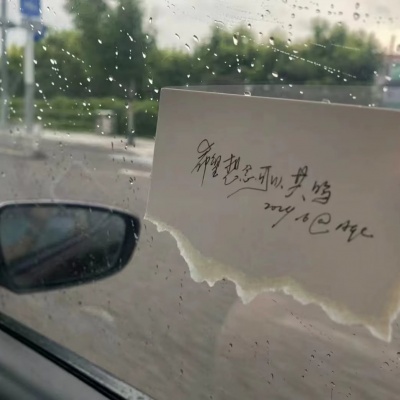 希望想念可以共鸣
2024.6@Age